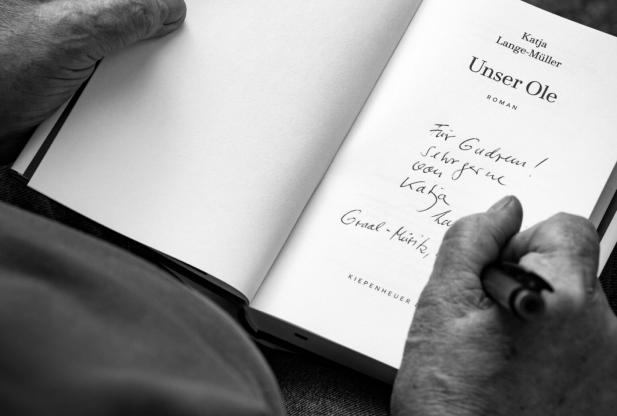 Katja
Lange-Müller
Unser Ole
ROMAN
Für Gudrun!
Sehr gerne
von
Katja
La
Graal-Müritz,
KIEPENHEUER